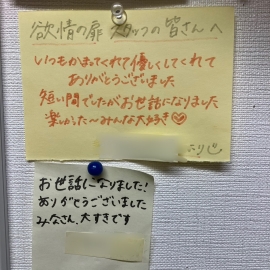 欲情の扉 スタッフの皆さんへ
いつもかまってくれて優しくしてくれて
ありがとうございました
短い間でしたがお世話になりました
楽しかった〜みんな大好き♡
より
お世話になりました!
ありがとうございました
みなさん、大すきです